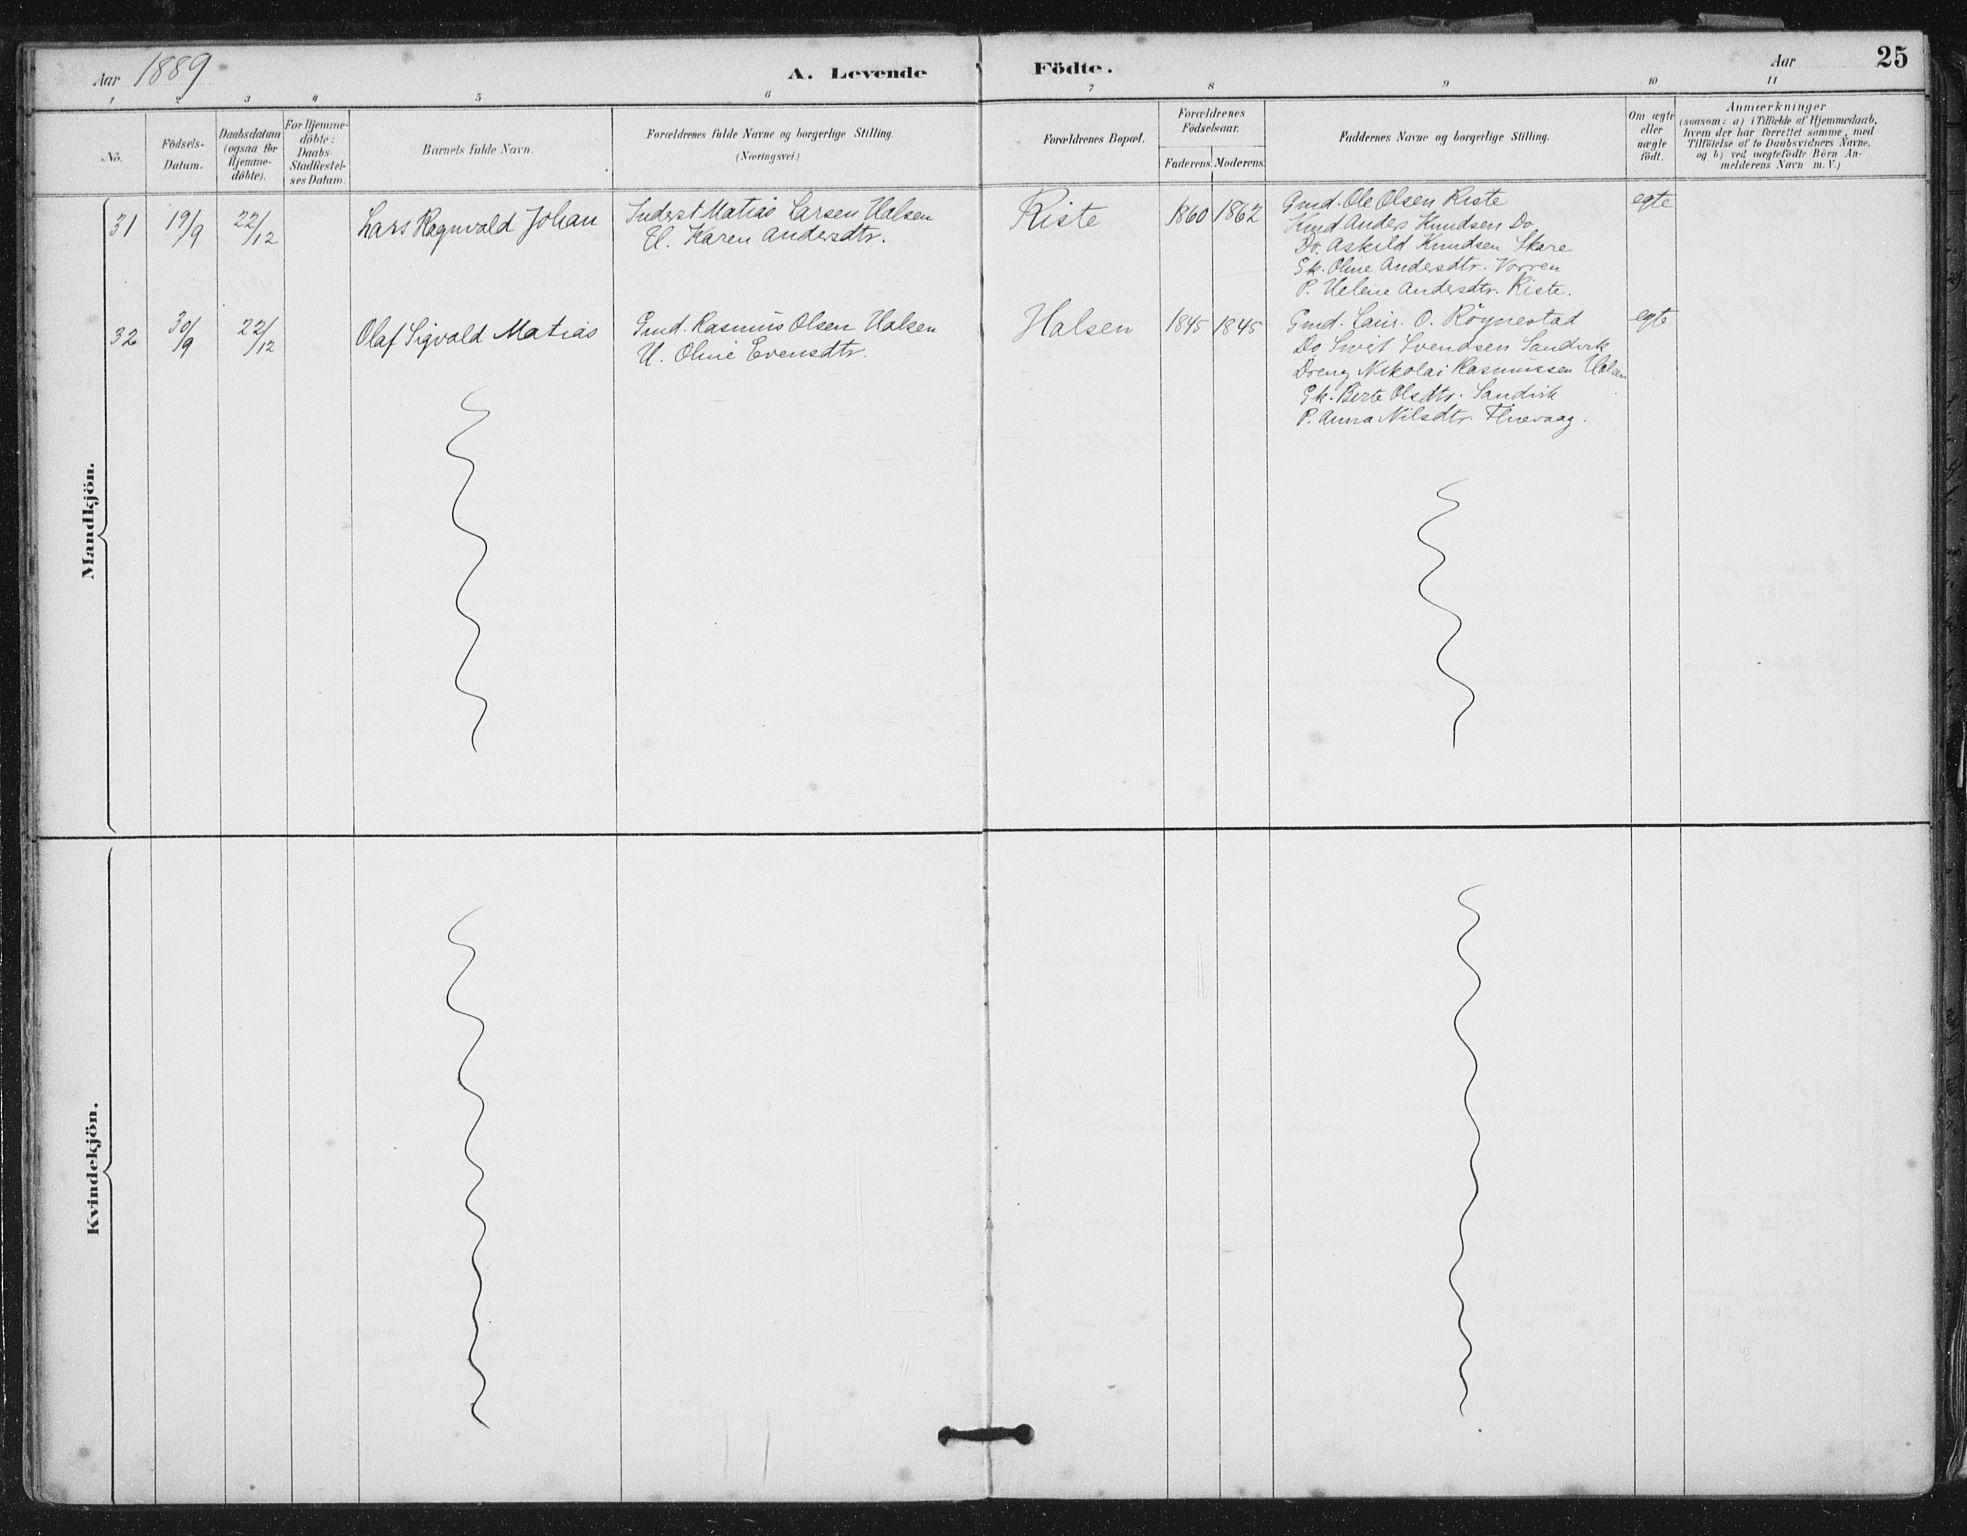 Aar 1889
A. Levende Födte.
Aar
25
1 2 3 4 5 6 7 8 9 10 11
No.
Födsels-
Datum.
Daabsdatum
(ogsaa for
Hjemme-
döbte).
For Hjemme-
döbte:
Daabs-
Stadfæstel-
ses Datum.
Barnets fulde Navn.
Forældrenes fulde Navne og borgerlige Stilling.
(Næringsvei)
Forældrenes Bopæl.
Forældrenes
Födselsaar.
Faderens. Moderens.
Faddernes Navne og borgerlige Stilling.
Om ægte
eller
uægte
födt.
Anmærkninger
(saasom: a) i Tilfælde af Hjemmedaab,
hvem der har forrettet samme, med
Tilföielse af to Daabsvidners Navne,
og b) ved uægtefödte Börn An-
melderens Navn m. V.)
Mandkjön.
31 19/9 22/12 Lars Ragnvald Johan
Inderst Matias Larsen Halsen
H. Karen Andersdtr.
Riste 1860 1862
Gmd. Ole Olsen Riste
Anders Knudsen Do
Do. Askild Knudsen Skare
Gk. Oline Andersdtr. Vorren
P. Helene Andersdtr. Riste.
egte
32 30/9 22/12 Olaf Sigvald Matias
Gmd. Rasmus Olsen Halsen
H. Oline Evensdtr.
Halsen 1845 1845
Gmd. Laur. O. Röynestad
Do Sivert Svendsen Sandvik
Dreng Nikolai Rasmussen Halsen
Gk. Berte Olsdtr. Sandvik
P. Anna Nilsdtr.
egte
Kvindekjön.